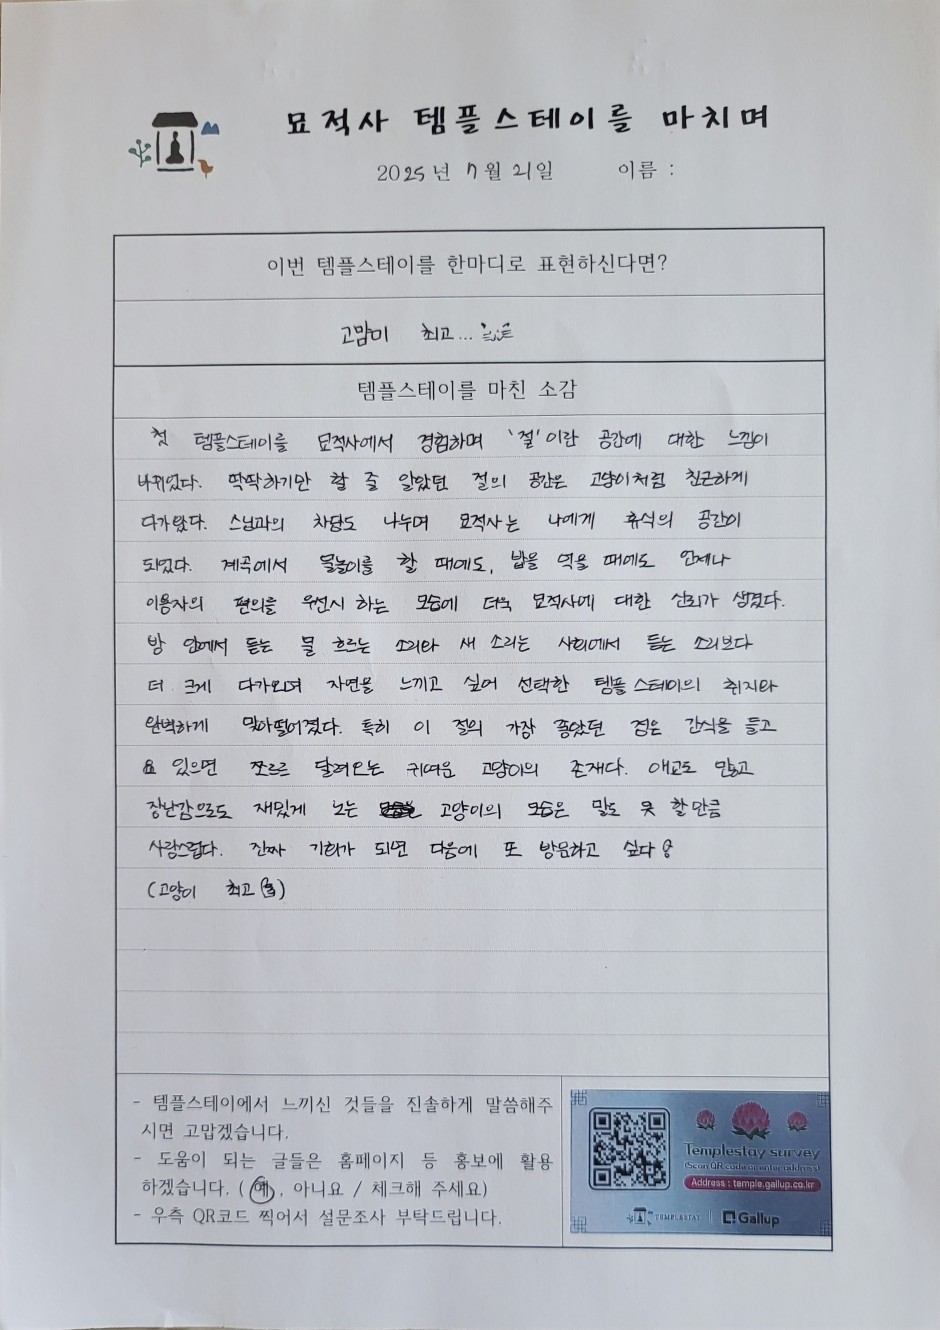 묘적사 템플스테이를 마치며
2025년 7월 21일 이름 :
이번 템플스테이를 한마디로 표현하신다면?
고먐미 최고...
템플스테이를 마친 소감
첫 템플스테이를 묘적사에서 경험하며 '절'이란 공간에 대한 느낌이
바뀌었다. 딱딱하기만 할 줄 알았던 절의 공간은 고양이처럼 친근하게
다가왔다. 스님과의 차담도 나누며 묘적사는 나에게 휴식의 공간이
되었다. 계곡에서 물놀이를 할 때에도, 밥을 먹을 때에도 언제나
이용자의 편의를 우선시 하는 모습에 더욱 묘적사에 대한 신뢰가 생겼다.
방 안에서 듣는 물 흐르는 소리와 새 소리는 사회에서 듣는 소리보다
더 크게 다가오며 자연을 느끼고 싶어 선택한 템플스테이의 취지와
완벽하게 맞아떨어졌다. 특히 이 절의 가장 좋았던 점은 간식을 들고
있으면 쪼르르 달려오는 귀여운 고양이의 존재다. 애교도 많고
장난감으로도 재밌게 노는 고양이의 모습은 말로 못 할 만큼
사랑스럽다. 진짜 기회가 되면 다음에 또 방문하고 싶다
(고양이 최고)
- 템플스테이에서 느끼신 것들을 진솔하게 말씀해주
시면 고맙겠습니다.
- 도움이 되는 글들은 홈페이지 등 홍보에 활용
하겠습니다. ( 예 , 아니요 / 체크해 주세요)
- 우측 QR코드 찍어서 설문조사 부탁드립니다.
Templestay survey
(Scan QR code or enter address)
Address : temple.gallup.co.kr
TEMPLESTAY | Gallup